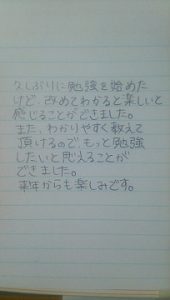 久しぶりに勉強を始めた
けど、改めてわかると楽しいと
感じることができました。
また、わかりやすく教えて
頂けるので、もっと勉強
したいと思えることが
できました。
来年からも楽しみです。